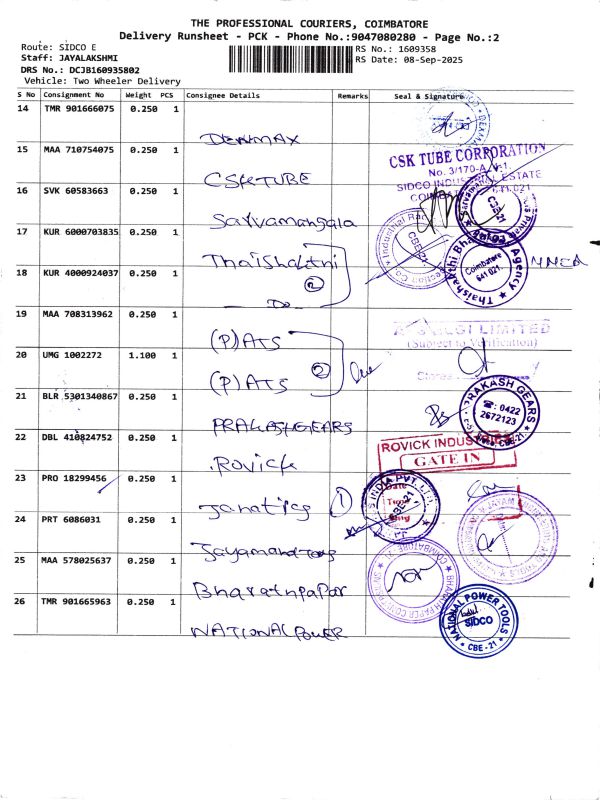 THE PROFESSIONAL COURIERS, COIMBATORE
Delivery Runsheet - PCK - Phone No.:9047080280 - Page No.:2
Route: SIDCO E
RS No.: 1609358
Staff: JAYALAKSHMI
RS Date: 08-Sep-2025
DRS No.: DCJB160935802
Vehicle: Two Wheeler Delivery
S No Consignment No Weight PCS Consignee Details Remarks Seal & Signature
14 TMR 901666075 0.250 1
DENMAX
15 MAA 710754075 0.250 1
CSK TUBE
CSK TUBE CORPORATION
No. 3/170-A
SIDCO INDUSTRIAL ESTATE
16 SVK 60583663 0.250 1
Sarvamangala
CBE-21
17 KUR 6000703835 0.250 1
Thaishakthi
2
CBE-21
18 KUR 4000924037 0.250 1
Do
Thaishakthi Agency
Coimbatore
641 021.
19 MAA 708313962 0.250 1
(P) ATS
LIMITED
(Subject to Verification)
20 UMG 1002272 1.100 1
(P) ATS
2
Stores
21 BLR 5301340867 0.250 1
PRAKASH GEARS
PRAKASH GEARS
☎: 0422
2672123
22 DBL 410824752 0.250 1
Rovick
ROVICK INDUSTRIES
GATE IN
23 PRO 18299456 0.250 1
Janatics
1
INDIA PVT. LTD.
Date
CBE-21
24 PRT 6086031 0.250 1
25 MAA 578025637 0.250 1
Bharathpapar
26 TMR 901665963 0.250 1
NATIONAL POWER
NATIONAL POWER TOOLS
SIDCO
CBE - 21